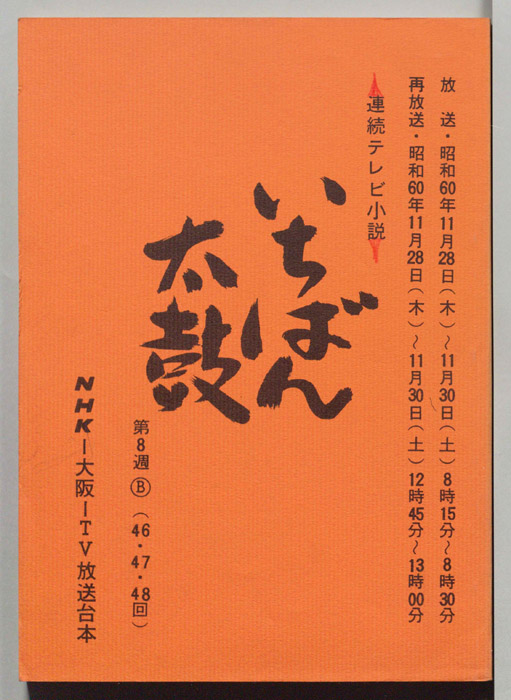 放送・昭和60年11月28日(木)~11月30日(土)8時15分~8時30分
再放送・昭和60年11月28日(木)~11月30日(土)12時45分~13時00分
連続テレビ小説
いちばん
太鼓
第8週Ⓑ(46・47・48回)
NHK-大阪-TV放送台本